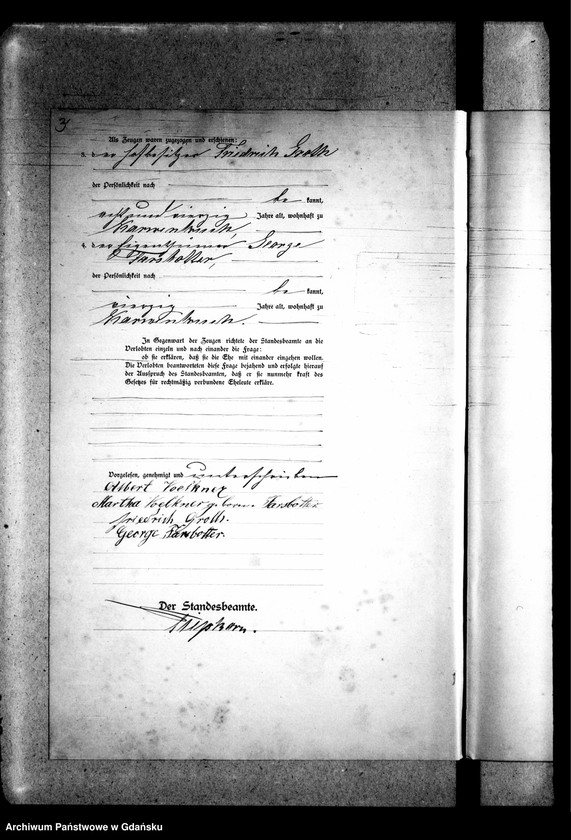 3
Als Zeugen waren zugezogen und erschienen:
3. der Hofbesitzer Friedrich Groth
der Persönlichkeit nach
be kannt,
acht und vierzig Jahre alt, wohnhaft zu
Karwenbruch,
4. der Eigenthümer George
Tarsbotter,
der Persönlichkeit nach
be kannt,
vierzig Jahre alt, wohnhaft zu
Karwenbruch.
In Gegenwart der Zeugen richtete der Standesbeamte an die
Verlobten einzeln und nach einander die Frage:
ob sie erklären, daß sie die Ehe mit einander eingehen wollen.
Die Verlobten beantworteten diese Frage bejahend und erfolgte hierauf
der Ausspruch des Standesbeamten, daß er sie nunmehr kraft des
Gesetzes für rechtmäßig verbundene Eheleute erkläre.
Vorgelesen, genehmigt und unterschrieben
Albert Voelkner
Martha Voelkner geborne Tarsbotter
Friedrich Groth.
George Tarsbotter.
Der Standesbeamte.
Archiwum Państwowe w Gdańsku